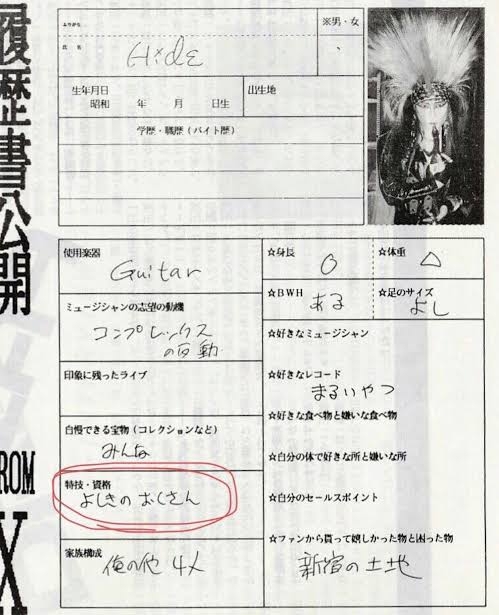 履歴書公開
ROM
X
ふりがな
氏名
Hide
※男・女
生年月日
昭和 年 月 日生
出生地
学歴・職歴（バイト歴）
使用楽器
Guitar
ミュージシャンの志望の動機
コンプレックス
の反動
印象に残ったライブ
自慢できる宝物（コレクションなど）
みんな
特技・資格
よしきのおくさん
家族構成
俺の他 4人
☆身長
○
☆体重
△
☆BWH
ある
☆足のサイズ
よし
☆好きなミュージシャン
☆好きなレコード
まるいやつ
☆好きな食べ物と嫌いな食べ物
☆自分の体で好きな所と嫌いな所
☆自分のセールスポイント
☆ファンから貰って嬉しかった物と困った物
新宿の土地